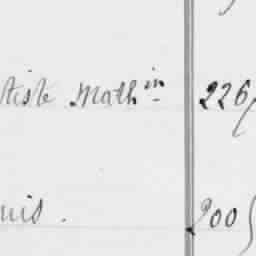 tiste Mathin 226
uis. 200